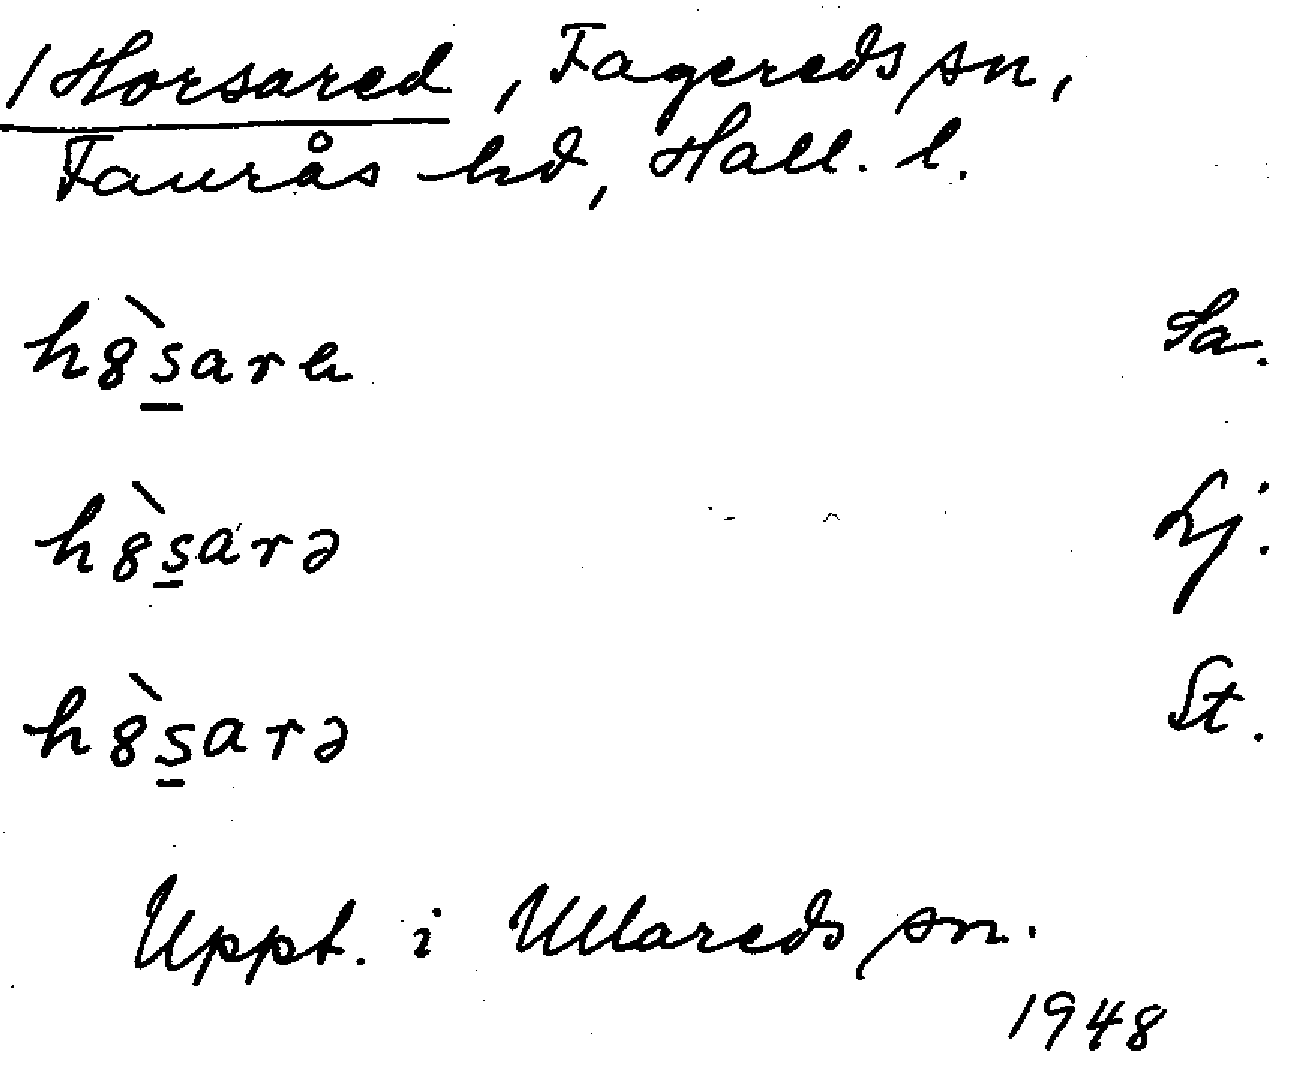 / Horsared, Fagereds sn,
Faurås hd, Hall. l.
h8̀s̲are Sa.
h8̀s̲arə Lj.
h8̀s̲arə St.
Uppt. i Ullareds sn.
1948